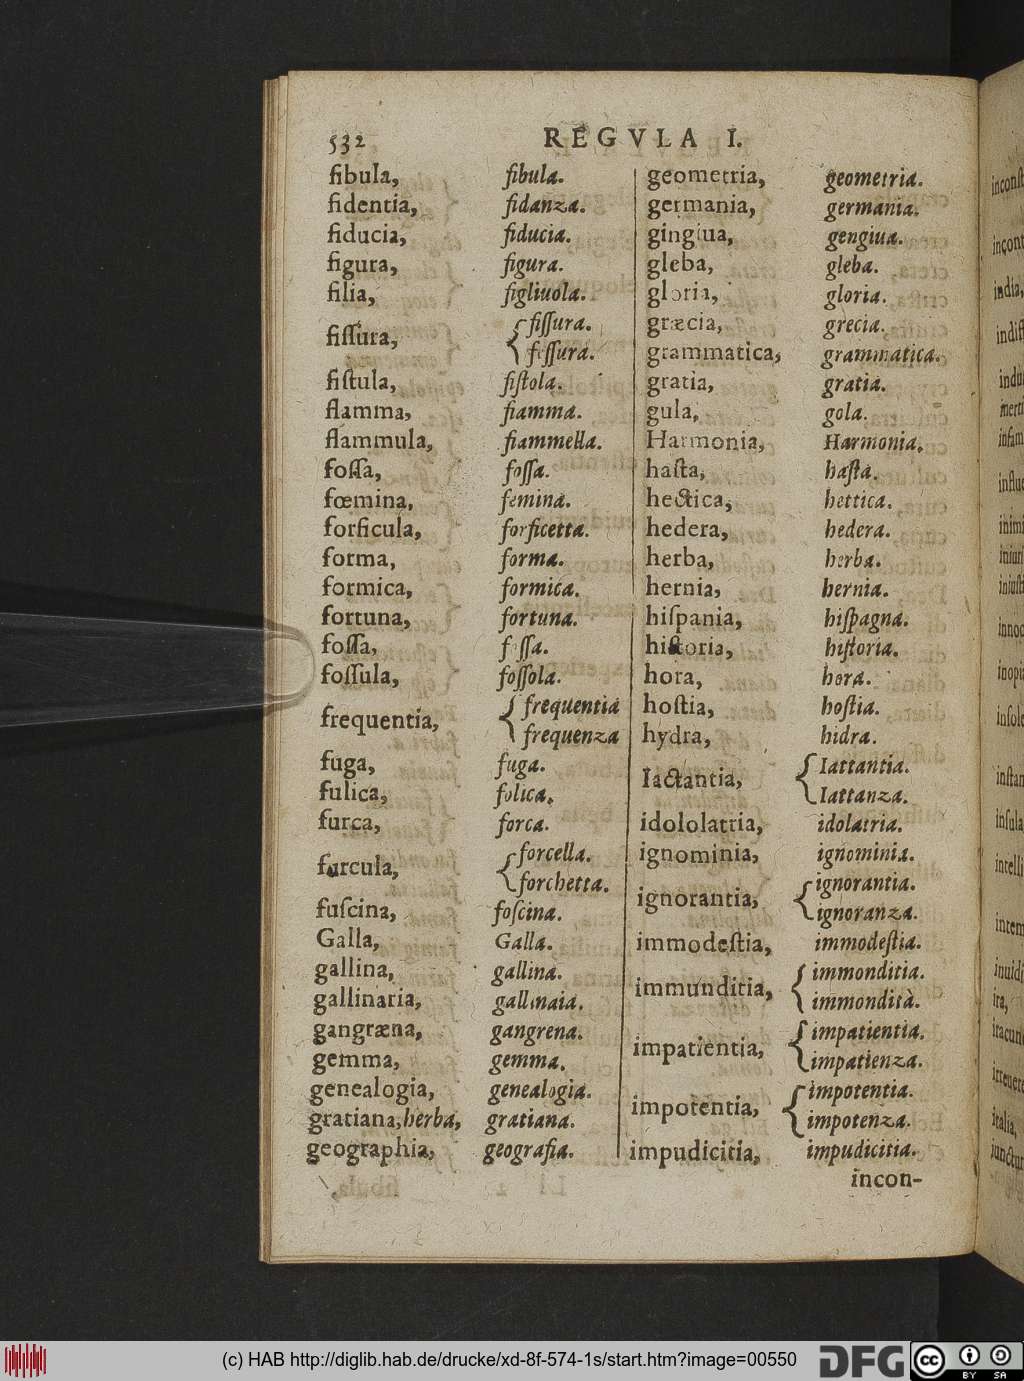 532 REGVLA I.
fibula, fibula.
fidentia, fidanza.
fiducia, fiducia.
figura, figura.
filia, figliuola.
fiſſura, {fiſſura.
feſſura.
fiſtula, fiſtola.
flamma, fiamma.
flammula, fiammella.
foſſa, foſſa.
fœmina, femina.
forficula, forficetta.
forma, forma.
formica, formica.
fortuna, fortuna.
foſſa, foſſa.
foſſula, foſſola.
frequentia, {frequentia
frequenza
fuga, fuga.
fulica, folica.
furca, forca.
furcula, {forcella.
forchetta.
fuſcina, foſcina.
Galla, Galla.
gallina, gallina.
gallinaria, gallinaia.
gangræna, gangrena.
gemma, gemma.
genealogia, genealogia.
gratiana, herba, gratiana.
geographia, geografia.
geometria, geometria.
germania, germania.
gingiua, gengiua.
gleba, gleba.
gloria, gloria.
græcia, grecia.
grammatica, grammatica.
gratia, gratia.
gula, gola.
Harmonia, Harmonia.
haſta, haſta.
hectica, hettica.
hedera, hedera.
herba, herba.
hernia, hernia.
hiſpania, hiſpagna.
hiſtoria, hiſtoria.
hora, hora.
hoſtia, hoſtia.
hydra, hidra.
Iactantia, {Iattantia.
Iattanza.
idololatria, idolatria.
ignominia, ignominia.
ignorantia, {ignorantia.
ignoranza.
immodeſtia, immodeſtia.
immunditia, {immonditia.
immondità.
impatientia, {impatientia.
impatienza.
impotentia, {impotentia.
impotenza.
impudicitia, impudicitia.
incon-
india,
italia,
(c) HAB http://diglib.hab.de/drucke/xd-8f-574-1s/start.htm?image=00550
DFG
cc BY SA